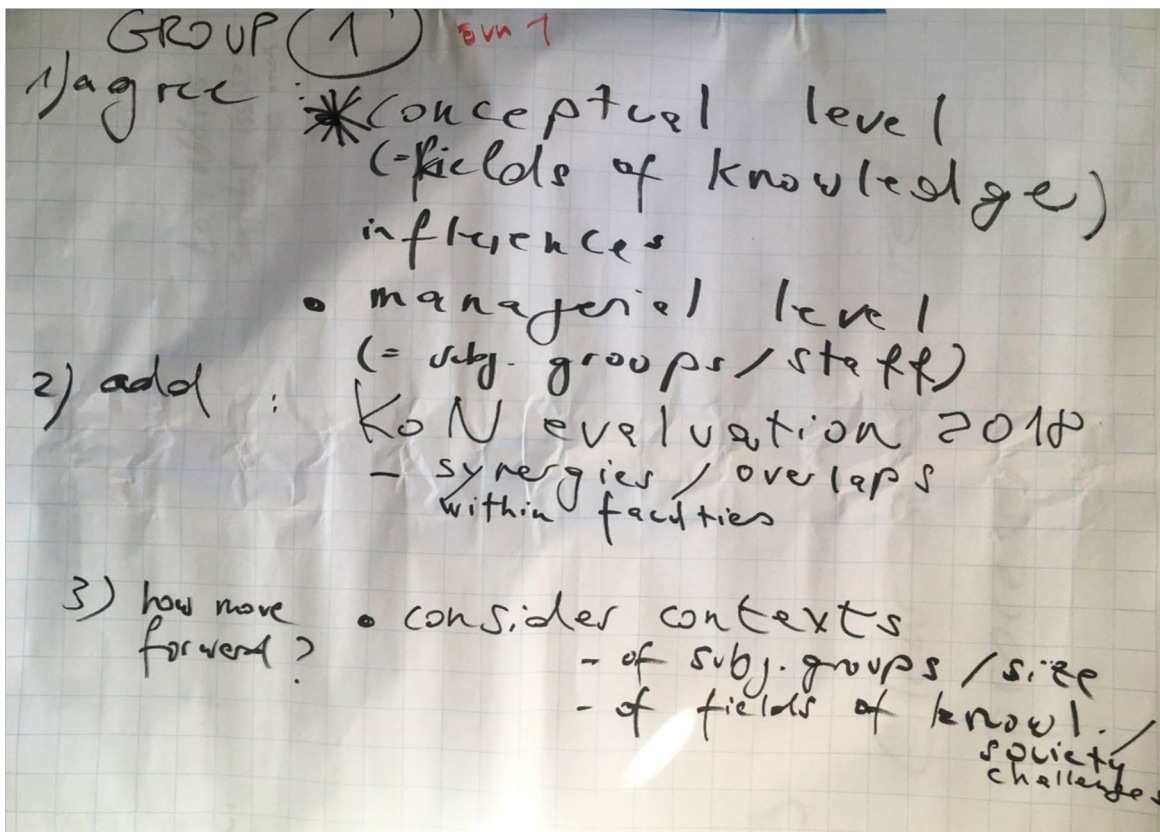 GROUP 1 övn 1
1) agree : * conceptual level
(= fields of knowledge)
influences
• managerial level
(= subj. groups / staff)
2) add : KoN evaluation 2018
- synergies / overlaps
within faculties
3) how move • consider contexts
forward?
- of subj. groups / size
- of fields of knowl. /
society
challenges